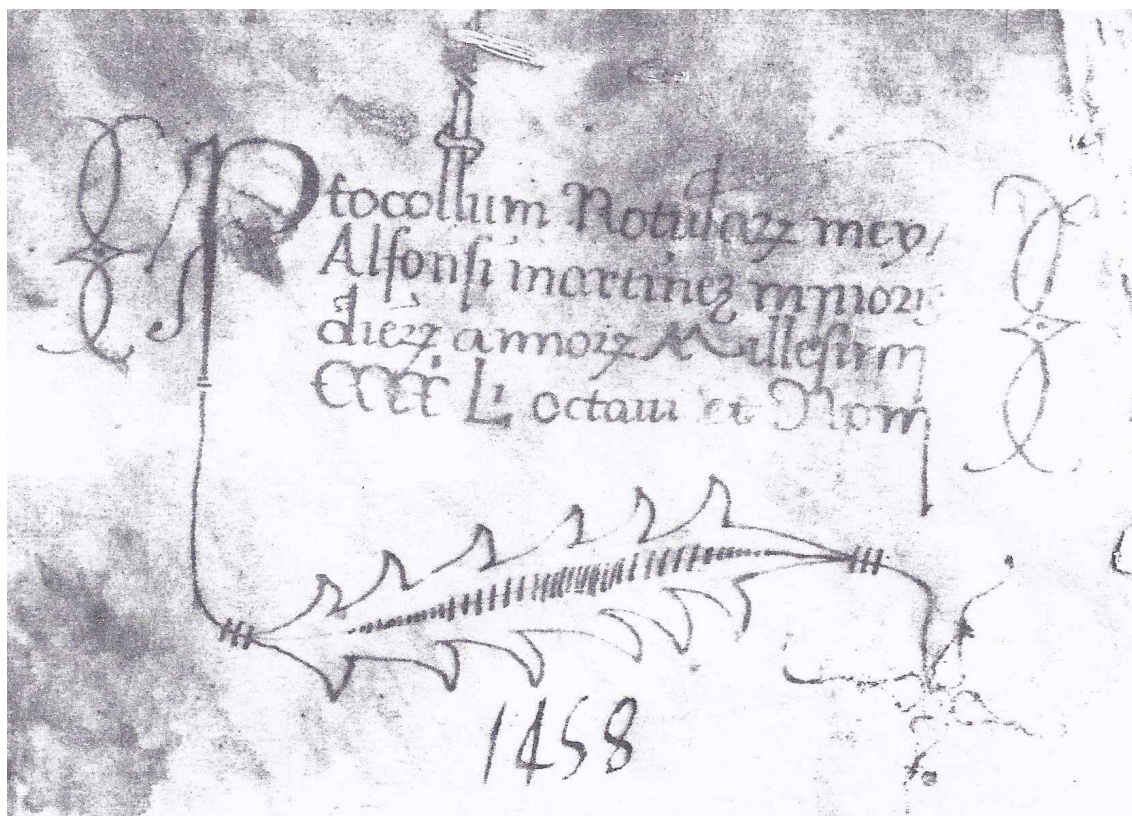 Ptocollum Notularȝ mey
Alfonsi martinez
dierȝ annorȝ Millesim
CCCC L octaui et Nom
1458